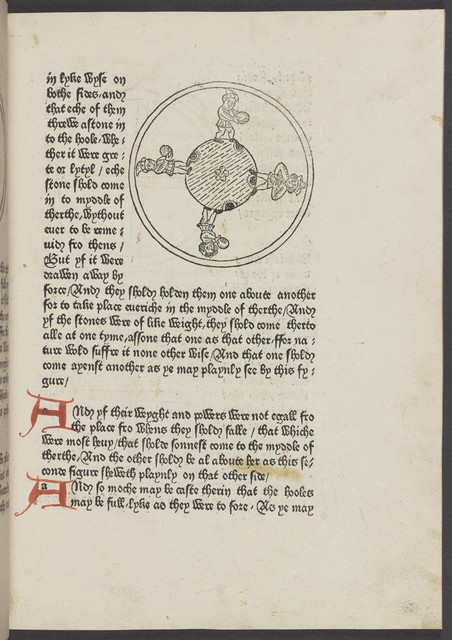 in lyke wyse on
bothe sides, and
that eche of them
threwe a stone in
to the hoole, whe-
ther it were gre-
te or lytyl / eche
stone shold come
in to myddle of
therthe, wythout
euer to be reme-
uid fro thens /
But yf it were
drawen away by
force / And they shold holden them one aboute another
for to take place eueriche in the myddle of therthe / And
yf the stones were of like weight, they shold come therto
alle at one tyme, assone that one as that other, ffor na-
ture wold suffre it none other wise / And that one shold
come ayenst another as ye may playnly see by this fy-
gure /
And yf their weyght and powers were not egall fro
the place fro whens they shold falle / that whiche
were most heuy / that sholde sonnest come to the myddle of
therthe, And the other shold be al aboute her as this se-
conde figure sheweth playnly on that other side /
And so moche may be caste therin that the hooles
may be full, lyke as they were to fore · As ye may